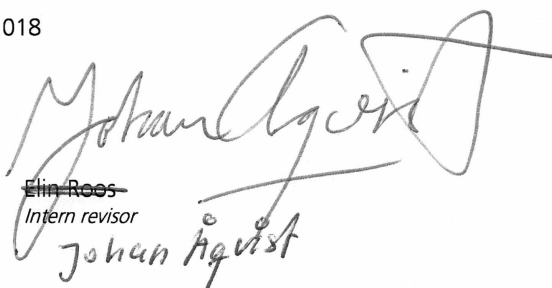 018
Johan Åqvist
Elin Roos
Intern revisor
Johan Åqvist